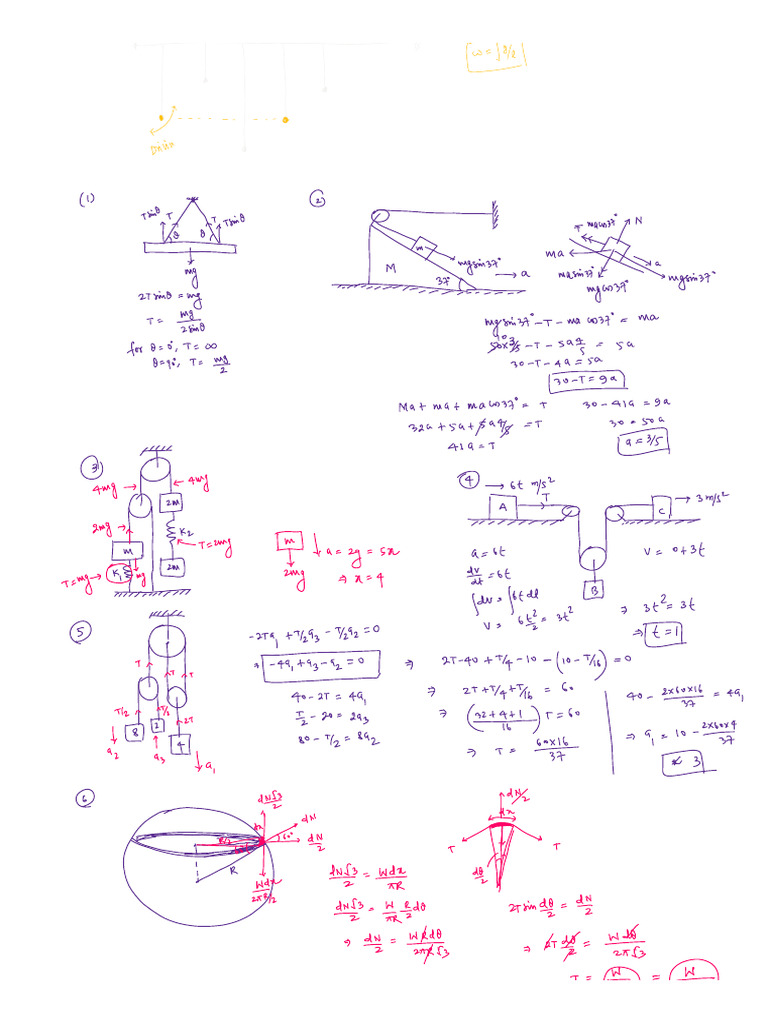 ω = √g/ℓ
(1)
Tsinθ T T Tsinθ
θ θ
mg
2Tsinθ = mg
T = mg/2sinθ
for θ=0°, T = ∞
θ=90°, T = mg/2
(2)
m
mgsin37°
M
37°
→ a
T macos37° N
ma
a
mgsin37°
mgcos37°
mgsin37° - T - macos37° = ma
50×3/5 - T - 5a4/5 = 5a
10
30 - T - 4a = 5a
30 - T = 9a
Ma + ma + macos37° = T
32a + 5a + 5a4/5 = T
41a = T
30 - 41a = 9a
30 = 50a
a = 3/5
(3)
4mg → ← 4mg
2m
2mg →
K2
T = 2mg
m
2m
T = mg → K1 mg
m
2mg
a = 2g = 5x
⇒ x = 4
(4)
→ 6t m/s²
A T
C → 3 m/s²
B
a = 6t
dv/dt = 6t
∫dv = ∫6t dt
v = 6t²/2 = 3t²
V = 0 + 3t
⇒ 3t² = 3t
⇒ t = 1
(5)
T T T
T/2 T/2 2T
8 2 4
a2 a3 a1
-2Ta1 + T/2a3 - T/2a2 = 0
⇒ -4a1 + a3 - a2 = 0
40 - 2T = 4a1
T/2 - 20 = 2a3
80 - T/2 = 8a2
⇒ 2T - 40 + T/4 - 10 - (10 - T/16) = 0
⇒ 2T + T/4 + T/16 = 60
⇒ (32+4+1/16) T = 60
⇒ T = 60×16/37
40 - 2×60×16/37 = 4a1
⇒ a1 = 10 - 2×60×4/37
(6)
dN√3/2
dx
dN
60°
dN/2
R/2
R
Wdx/2πR/2
dN√3/2 = Wdx/πR
dN√3/2 = W/πR R/2 dθ
⇒ dN/2 = WRdθ/2πR√3
dN/2
dx
T T
dθ/2
2Tsin dθ/2 = dN/2
⇒ 2T dθ/2 = Wdθ/2π√3
T = W = W